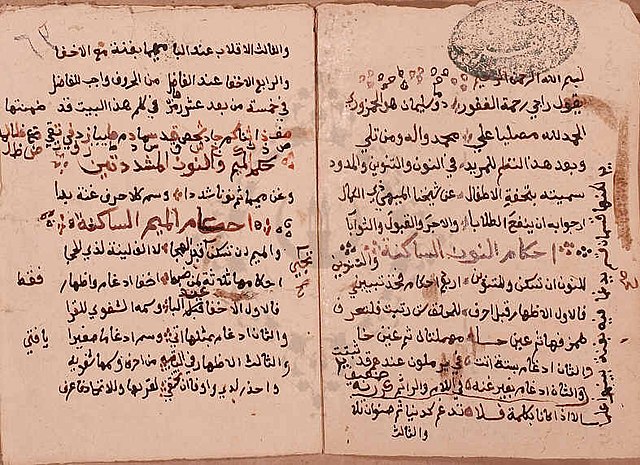 بسم الله الرحمن الرحيم
يقول راجي رحمة الغفور دوما سليمان هو الجمزوري
الحمد لله مصليا على محمد واله ومن تلى
وبعد هذا النظم للمريد في النون والتنوين والمدود
سميته بتحفة الاطفال عن شيخنا الميهي ذي الكمال
ارجو به ان ينفع الطلابا والاجر والقبول والثوابا
احكام النون الساكنة والتنوين
للنون ان تسكن وللتنوين اربع احكام فخذ تبييني
فالاول الاظهار قبل احرف للحلق ست رتبت فلتعرف
همز فهاء ثم عين حاء مهملتان ثم غين خا
والثان ادغام بستة اتت في يرملون عندهم قد ثبتت
والثان ادغام بغير غنه في اللام والرا ثم كررنه
الا اذا كانا بكلمة فلا تدغم كدنيا ثم صنوان تلا
والثالث
والثالث الاقلاب عند الباء ميما بغنة مع الاخفا
والرابع الاخفا عند الفاضل من الحروف واجب للفاضل
في خمسة من بعد عشر رمزها في كلم هذا البيت قد ضمنتها
صف ذا ثنا كم جاد شخص قد سما دم طيبا زد في تقى ضع ظالما
حكم الميم والنون المشددتين
وغن ميما ثم نونا شددا وسم كلا حرف غنة بدا
احكام الميم الساكنة
والميم ان تسكن تجي قبل الهجا لا الف لينة لذي الحجا
احكامها ثلاثة لمن ضبط اخفا ادغام واظهار
فقط
فالاول الاخفا قبل الباء وسمه الشفوي للقرا
والثان ادغام بمثلها اتى وسم ادغاما صغيرا
يا فتى
والثالث الاظهار في البقيه من احرف وسمها شفويه
واحذر لدى واو وفا ان تختفي لقربها وللاتحاد فاعرف